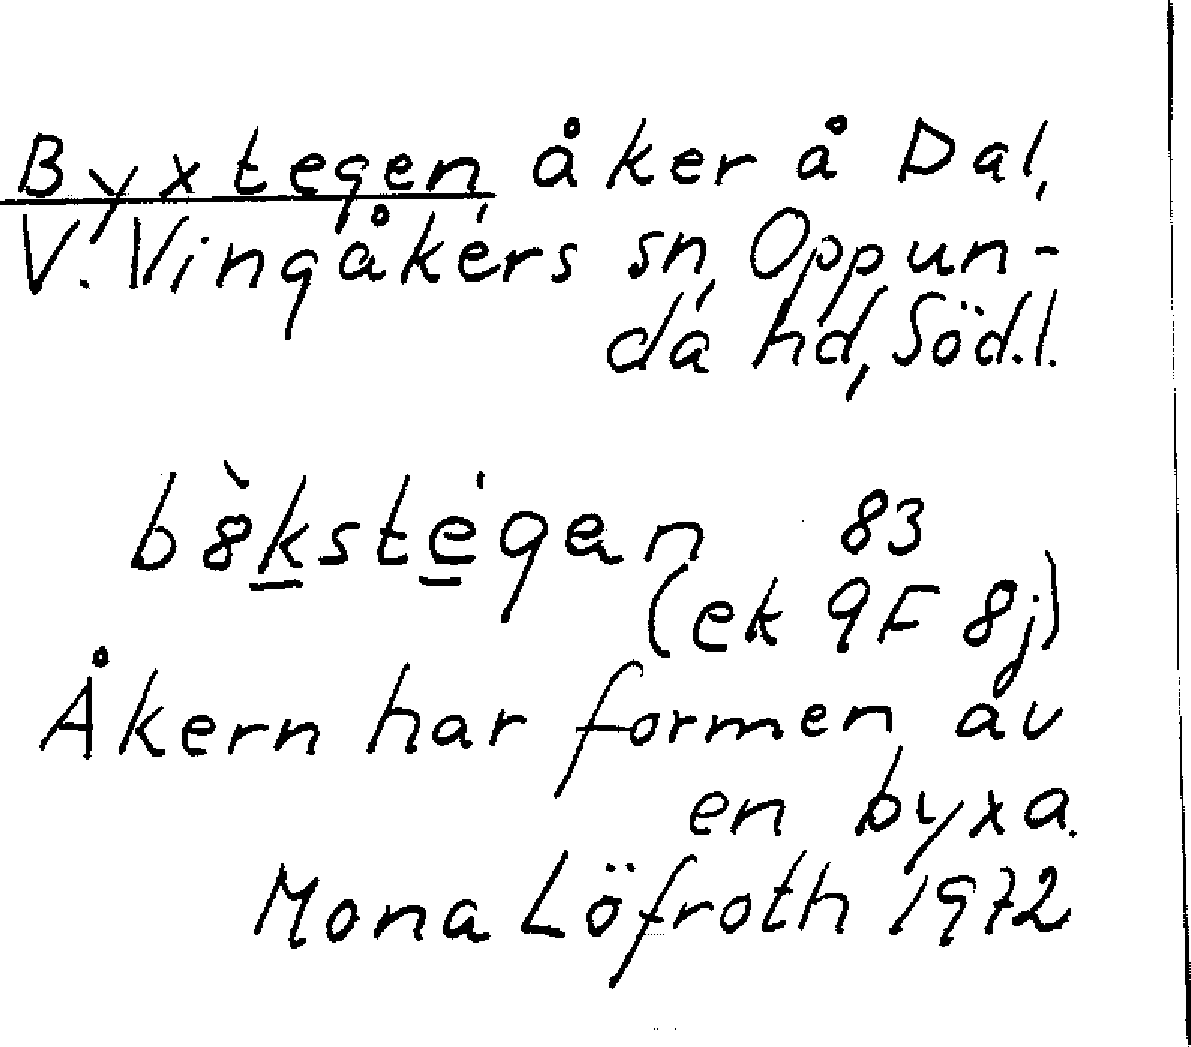 Byxtegen, åker å Dal,
V. Vingåkers sn, Oppun-
da hd, Söd.l.
b8̀kstégen 83
(ek 9F 8j)
Åkern har formen av
en byxa.
Mona Löfroth 1972